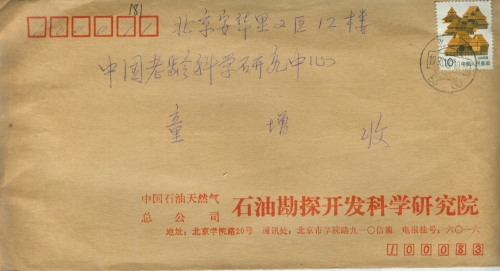 181
北京安华里2区12楼
中国老龄科学研究中心
童 增 收
10分 中国人民邮政
中国石油天然气
总公司
石油勘探开发科学研究院
地址：北京学院路20号 通讯处：北京市学院路九一〇信箱 电报挂号：六〇一六
100083